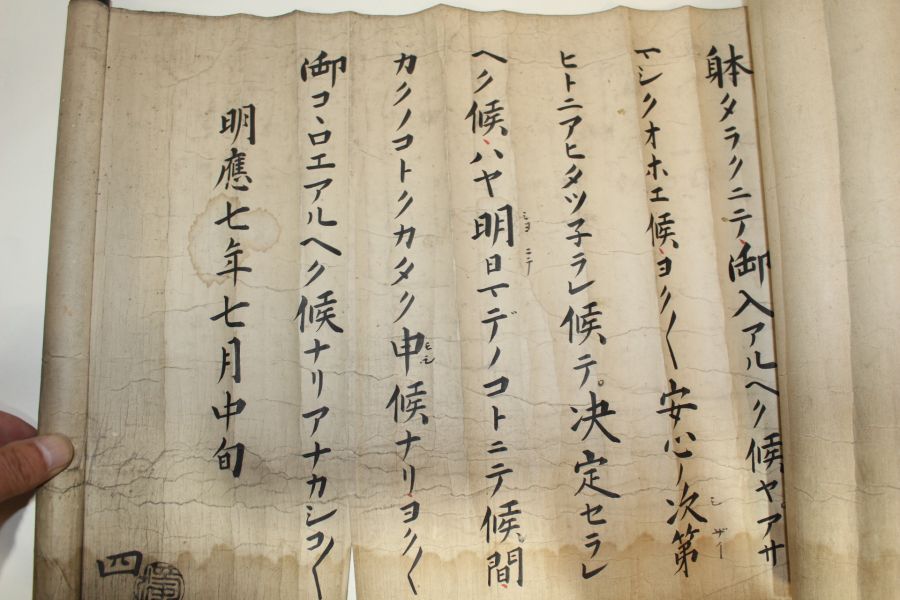 躰タラクニテ御入アルヘク候ヤアサ
マシクオホエ候ヨク〱安心ノ次第
ヒトニアヒタツ子ラレ候テ。决定セラレ
ヘク候、ハヤ明日マデノコトニテ候間、
カクノコトクカタク申候ナリヨク〱
御コヽロエアルヘク候ナリアナカシコ〱
明應七年七月中旬
四